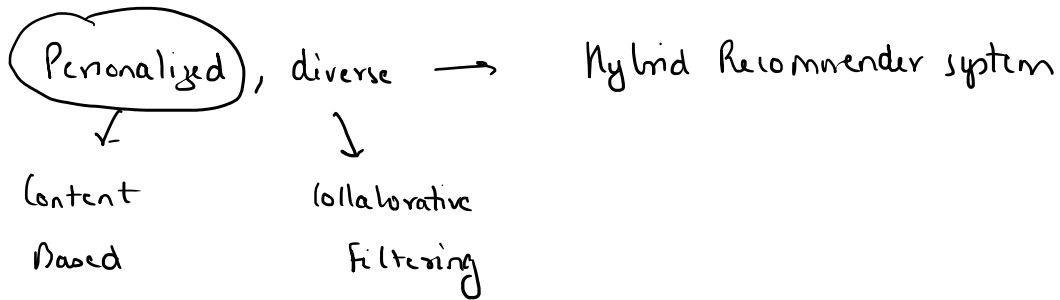 Personalized, diverse → Hybrid Recommender system
Content Collaborative
Based Filtering